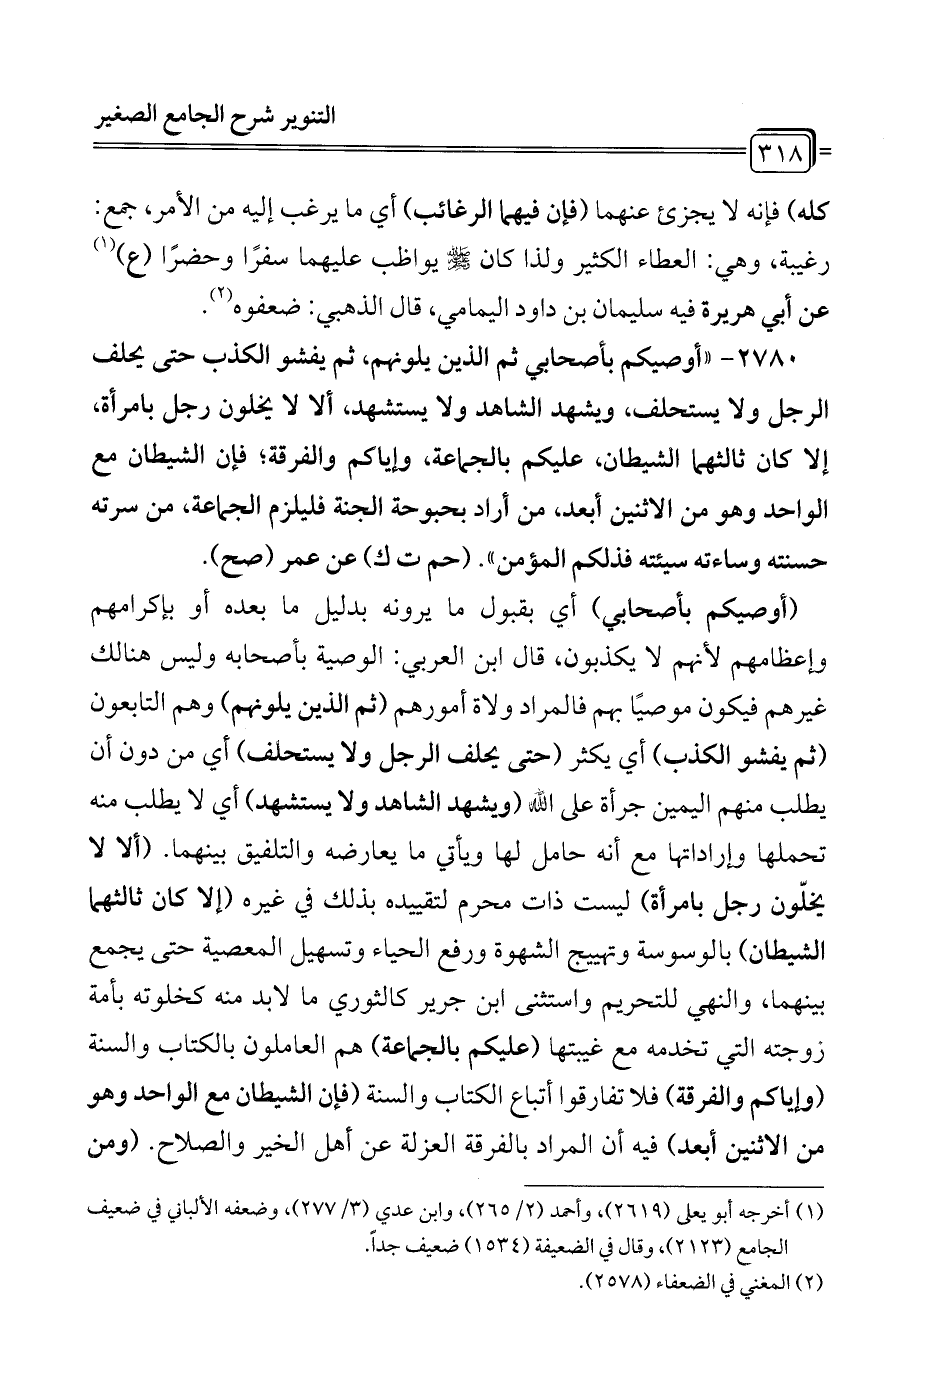 التنوير شرح الجامع الصغير
٣١٨
كله) فإنه لا يجزئ عنهما (فإن فيهما الرغائب) أي ما يرغب إليه من الأمر، جمع:
رغيبة، وهي: العطاء الكثير ولذا كان ﷺ يواظب عليهما سفرًا وحضرًا (ع)(١)
عن أبي هريرة فيه سليمان بن داود اليمامي، قال الذهبي: ضعفوه(٢).
٢٧٨٠- «أوصيكم بأصحابي ثم الذين يلونهم، ثم يفشو الكذب حتى يحلف
الرجل ولا يستحلف، ويشهد الشاهد ولا يستشهد، ألا لا يخلون رجل بامرأة،
إلا كان ثالثهما الشيطان، عليكم بالجماعة، وإياكم والفرقة؛ فإن الشيطان مع
الواحد وهو من الاثنين أبعد، من أراد بحبوحة الجنة فليلزم الجماعة، من سرته
حسنته وساءته سيئته فذلكم المؤمن». (حم ت ك) عن عمر (صح).
(أوصيكم بأصحابي) أي بقبول ما يرونه بدليل ما بعده أو بإكرامهم
وإعظامهم لأنهم لا يكذبون، قال ابن العربي: الوصية بأصحابه وليس هنالك
غيرهم فيكون موصيًا بهم فالمراد ولاة أمورهم (ثم الذين يلونهم) وهم التابعون
(ثم يفشو الكذب) أي يكثر (حتى يحلف الرجل ولا يستحلف) أي من دون أن
يطلب منهم اليمين جرأة على الله (ويشهد الشاهد ولا يستشهد) أي لا يطلب منه
تحملها وإراداتها مع أنه حامل لها ويأتي ما يعارضه والتلفيق بينهما. (ألا لا
يخلّون رجل بامرأة) ليست ذات محرم لتقييده بذلك في غيره (إلا كان ثالثهما
الشيطان) بالوسوسة وتهييج الشهوة ورفع الحياء وتسهيل المعصية حتى يجمع
بينهما، والنهي للتحريم واستثنى ابن جرير كالثوري ما لابد منه كخلوته بأمة
زوجته التي تخدمه مع غيبتها (عليكم بالجماعة) هم العاملون بالكتاب والسنة
(وإياكم والفرقة) فلا تفارقوا أتباع الكتاب والسنة (فإن الشيطان مع الواحد وهو
من الاثنين أبعد) فيه أن المراد بالفرقة العزلة عن أهل الخير والصلاح. (ومن
(١) أخرجه أبو يعلى (٢٦١٩)، وأحمد (٢/ ٢٦٥)، وابن عدي (٣/ ٢٧٧)، وضعفه الألباني في ضعيف
الجامع (٢١٢٣)، وقال في الضعيفة (١٥٣٤) ضعيف جداً.
(٢) المغني في الضعفاء (٢٥٧٨).